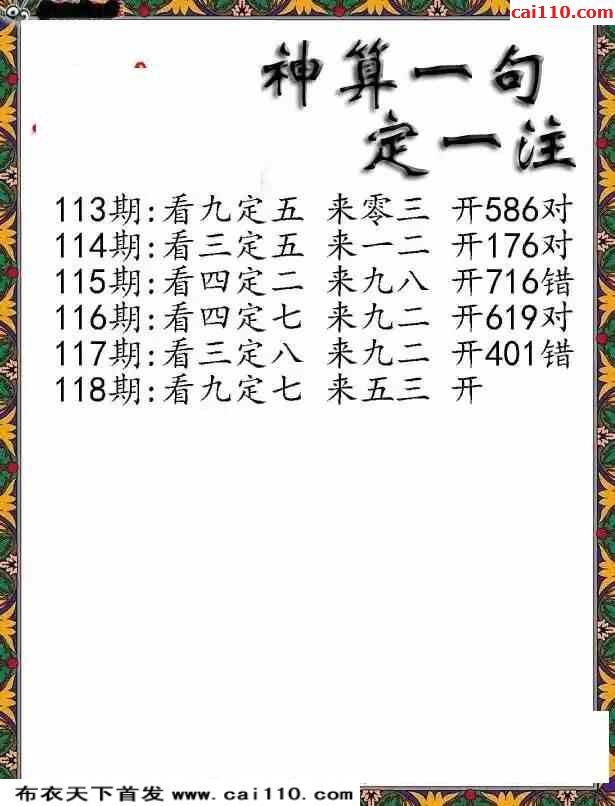 cai110.com
神算一句
定一注
113期:看九定五 来零三 开586对
114期:看三定五 来一二 开176对
115期:看四定二 来九八 开716错
116期:看四定七 来九二 开619对
117期:看三定八 来九二 开401错
118期:看九定七 来五三 开
布衣天下首发 www.cai110.com